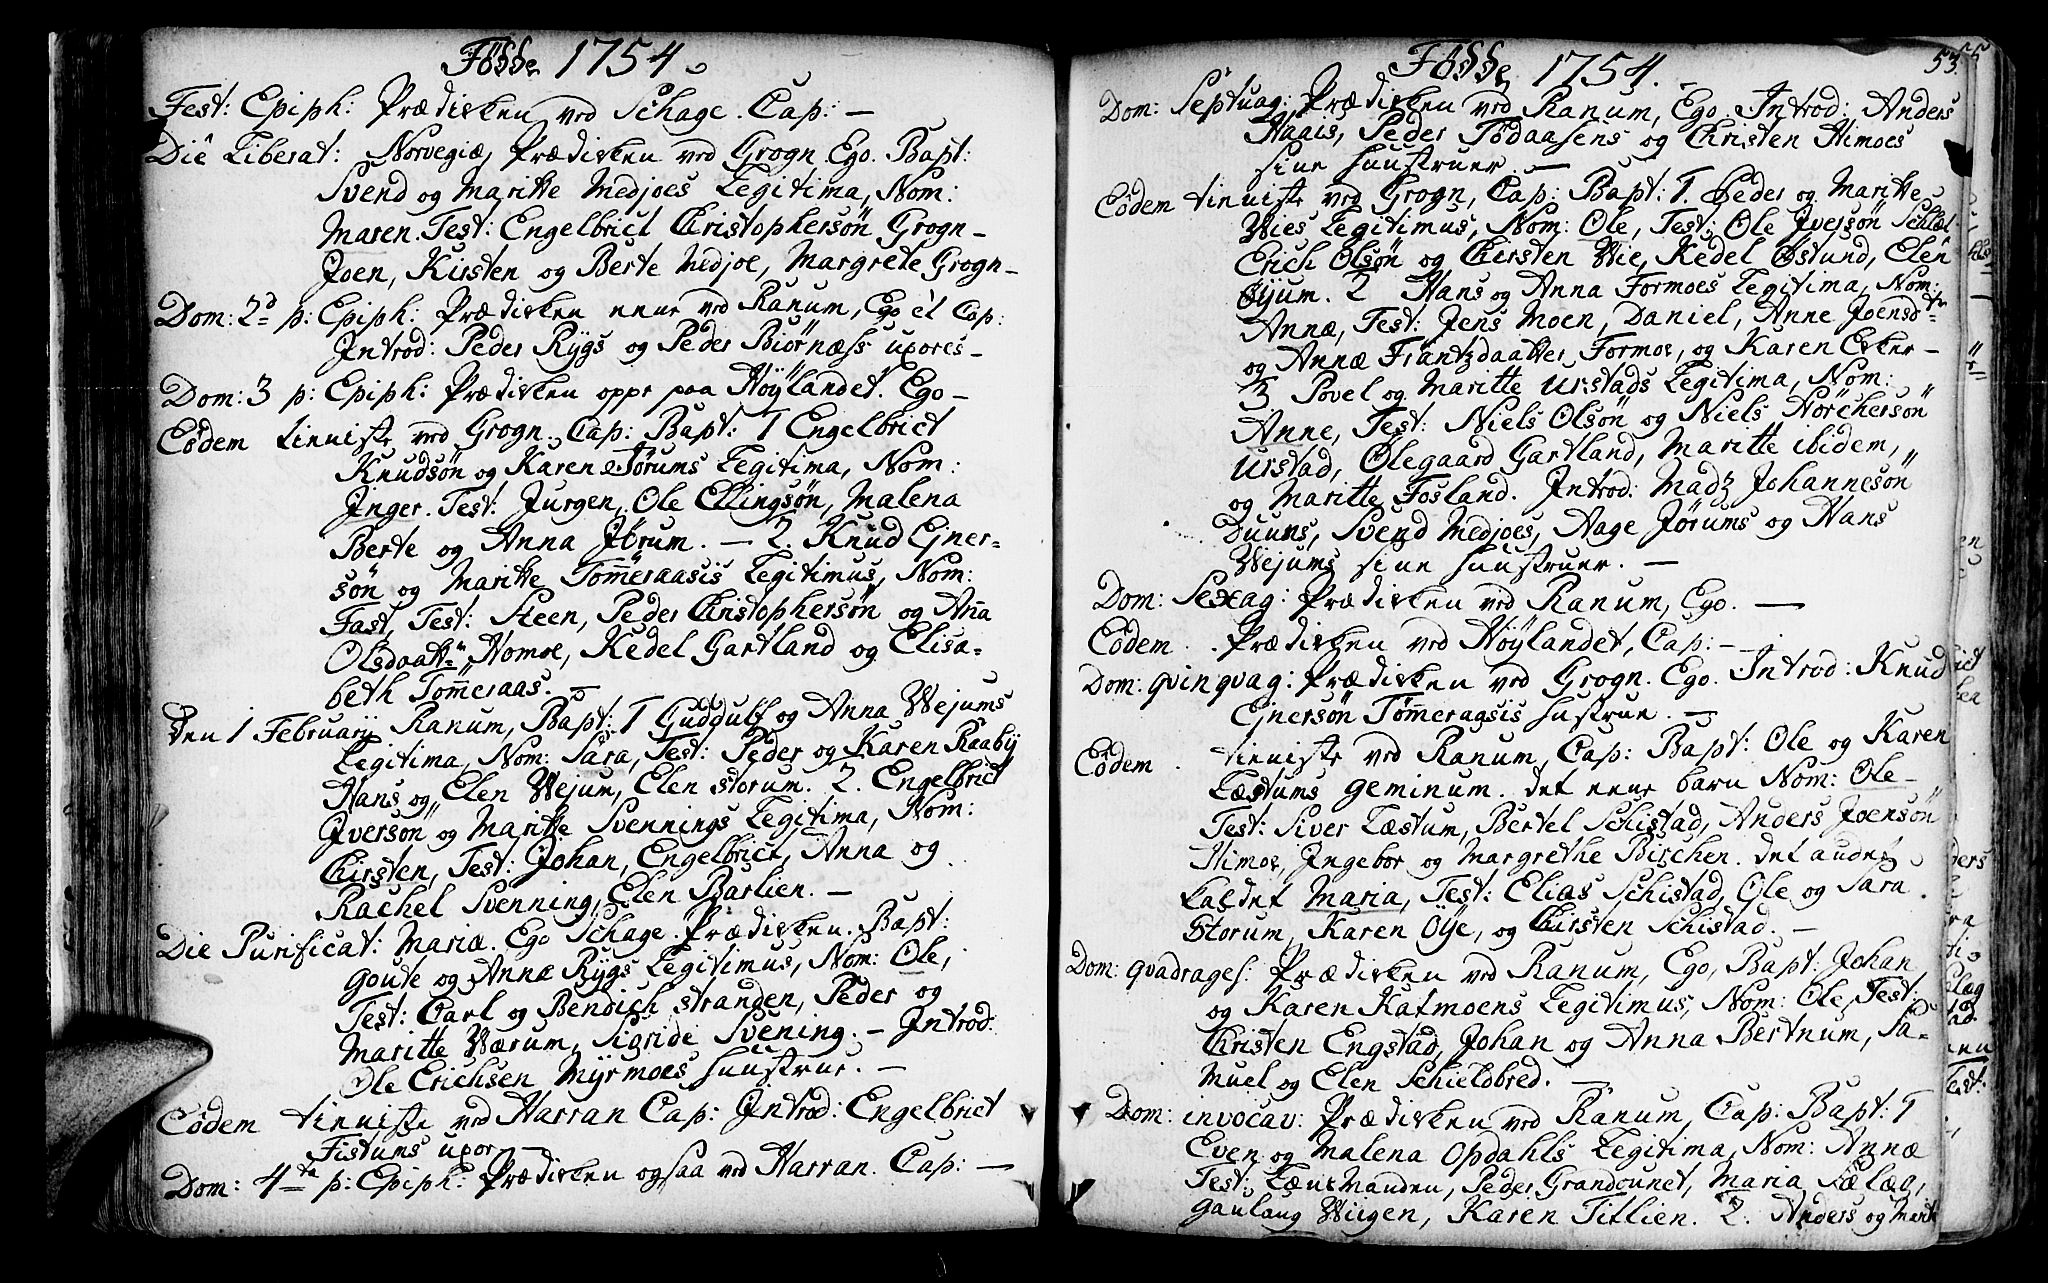 Föߧe 1754
Fest: Epiph: Prædicken ved Schage. Cap: —
Die Liberat: Norvegiæ, Prædicken ved Grogn. Ego. Bapt:
Svend og Maritte Medjoes Legitima, Nom:
Maren. Test: Engelbrict Christophersön Grogn-
Joen, Kirsten og Berte Medjoe, Margrete Grogn—
Dom: 2d p: Epiph: Prædicken nene ved Ranum, Ego et Cap:
Introd: Peder Rygs og Peder Biörnæss uxores —
Dom: 3 p: Epiph: Prædicken oppe paa Höylandet. Ego —
Eodem tienniste ved Grogn. Cap: Bapt: 1 Engelbrict
Knudsön og Karen Jørums Legitima, Nom:
Inger. Test: Jurgen, Ole Ellingsön, Malena
Berte og Anna Jørum. — 2. Knud Ejner-
sön og Maritte Tom̄eraasis Legitimus, Nom:
Fast, Test: Steen, Peder Christophersön og An̄a
Olsdaattr, Homoe, Kedel Gartland og Elisa-
beth Tom̄eraas. —
Den 1 February Ranum, Bapt: 1 Guddulf og Anna Wejums
Legitima, Nom: Sara, Test: Peder og Karen Raaby
Hans og Elen Wejum, Elen Storum. 2. Engelbrict
Iversön og Maritte Svennings Legitima, Nom:
Chirsten, Test: Johan, Engelbrict, Anna og
Rachel Svenning, Elen Barlien. —
Die Purificat: Mariæ. Ego Schage. Prædicken. Bapt:
Goute og Annæ Rygs Legitimus, Nom: Ole,
Test: Carl og Bendich Stranden, Peder og
Maritte Wærum, Sigride Svening. — Introd:
Ole Erichsen Myrmoes huustrue. —
Eodem tienniste ved Harran Cap: Introd: Engelbrict
Fistums uxor —
Dom: 4ta p: Epiph: Prædicken ogsaa ved Harran. Cap: —
Föߧe 1754.
53
Dom: Septuag: Prædicken ved Ranum, Ego. Introd: Anders
Haais, Peder Tödaasens og Christen Himoes
sine huustruer. —
Eodem tienniste ved Grogn, Cap: Bapt: 1. Peder og Maritte
Wies Legitimus, Nom: Ole, Test: Ole Iversön
Erich Olsön og Chirsten Wie, Kedel Østund, Elen
2 Hans og Anna Formoes Legitima, Nom:
Annæ, Test: Jens Moen, Daniel, Anne Joensdtr
og Annæ Frantzdaatter Formoe, og Karen Ekker —
3 Povel og Maritte Urstads Legitima, Nom:
Anne, Test: Niels Olsön og Niels
Urstad, Ølegaard Gartland, Maritte ibidem,
og Maritte Fosland. Introd: Madz Johannesön
Duuns, Svend Medjoes, Aage Jørums og Hans
Wejums sine huustruer. —
Dom: Sexag: Prædicken ved Ranum, Ego. —
Eodem Prædicken ved Höylandet, Cap: —
Dom: Qvinqvag: Prædicken ved Grogn. Ego. Introd: Knud
Ejnersön Tom̄eraasis hustrue. —
Eodem tienniste ved Ranum, Cap: Bapt: Ole og Karen
Læstums Geminum. det eene barn Nom: Ole —
Test: Siver Læstum, Bertel Schistad, Anders Joensön
Himoe, Ingebor og Margrethe Birchen. det andet
kaldet Maria, Test: Elias Schistad, Ole og Sara
Storum, Karen Öÿe, og Chirsten Schistad. —
Dom: Qvadrages: Prædicken ved Ranum, Ego, Bapt: Johan
og Karen Katmoens Legitimus, Nom: Ole, Test:
Christen Engstad, Johan og Anna Bertnum, Sa-
muel og Elen Schieldbred. —
Dom: invocav: Prædicken ved Ranum, Cap: Bapt: 1
Even og Malena Opdahls Legitima, Nom: Annæ
Test: Lænsmanden, Peder Grandounet, Maria
Gaulaug Wiigen, Karen Titlien. 2. Anders og Marit